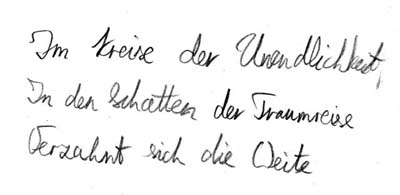 Im Kreise der Unendlichkeit,
In den Schatten der Traumreise
Verzahnt sich die Weite